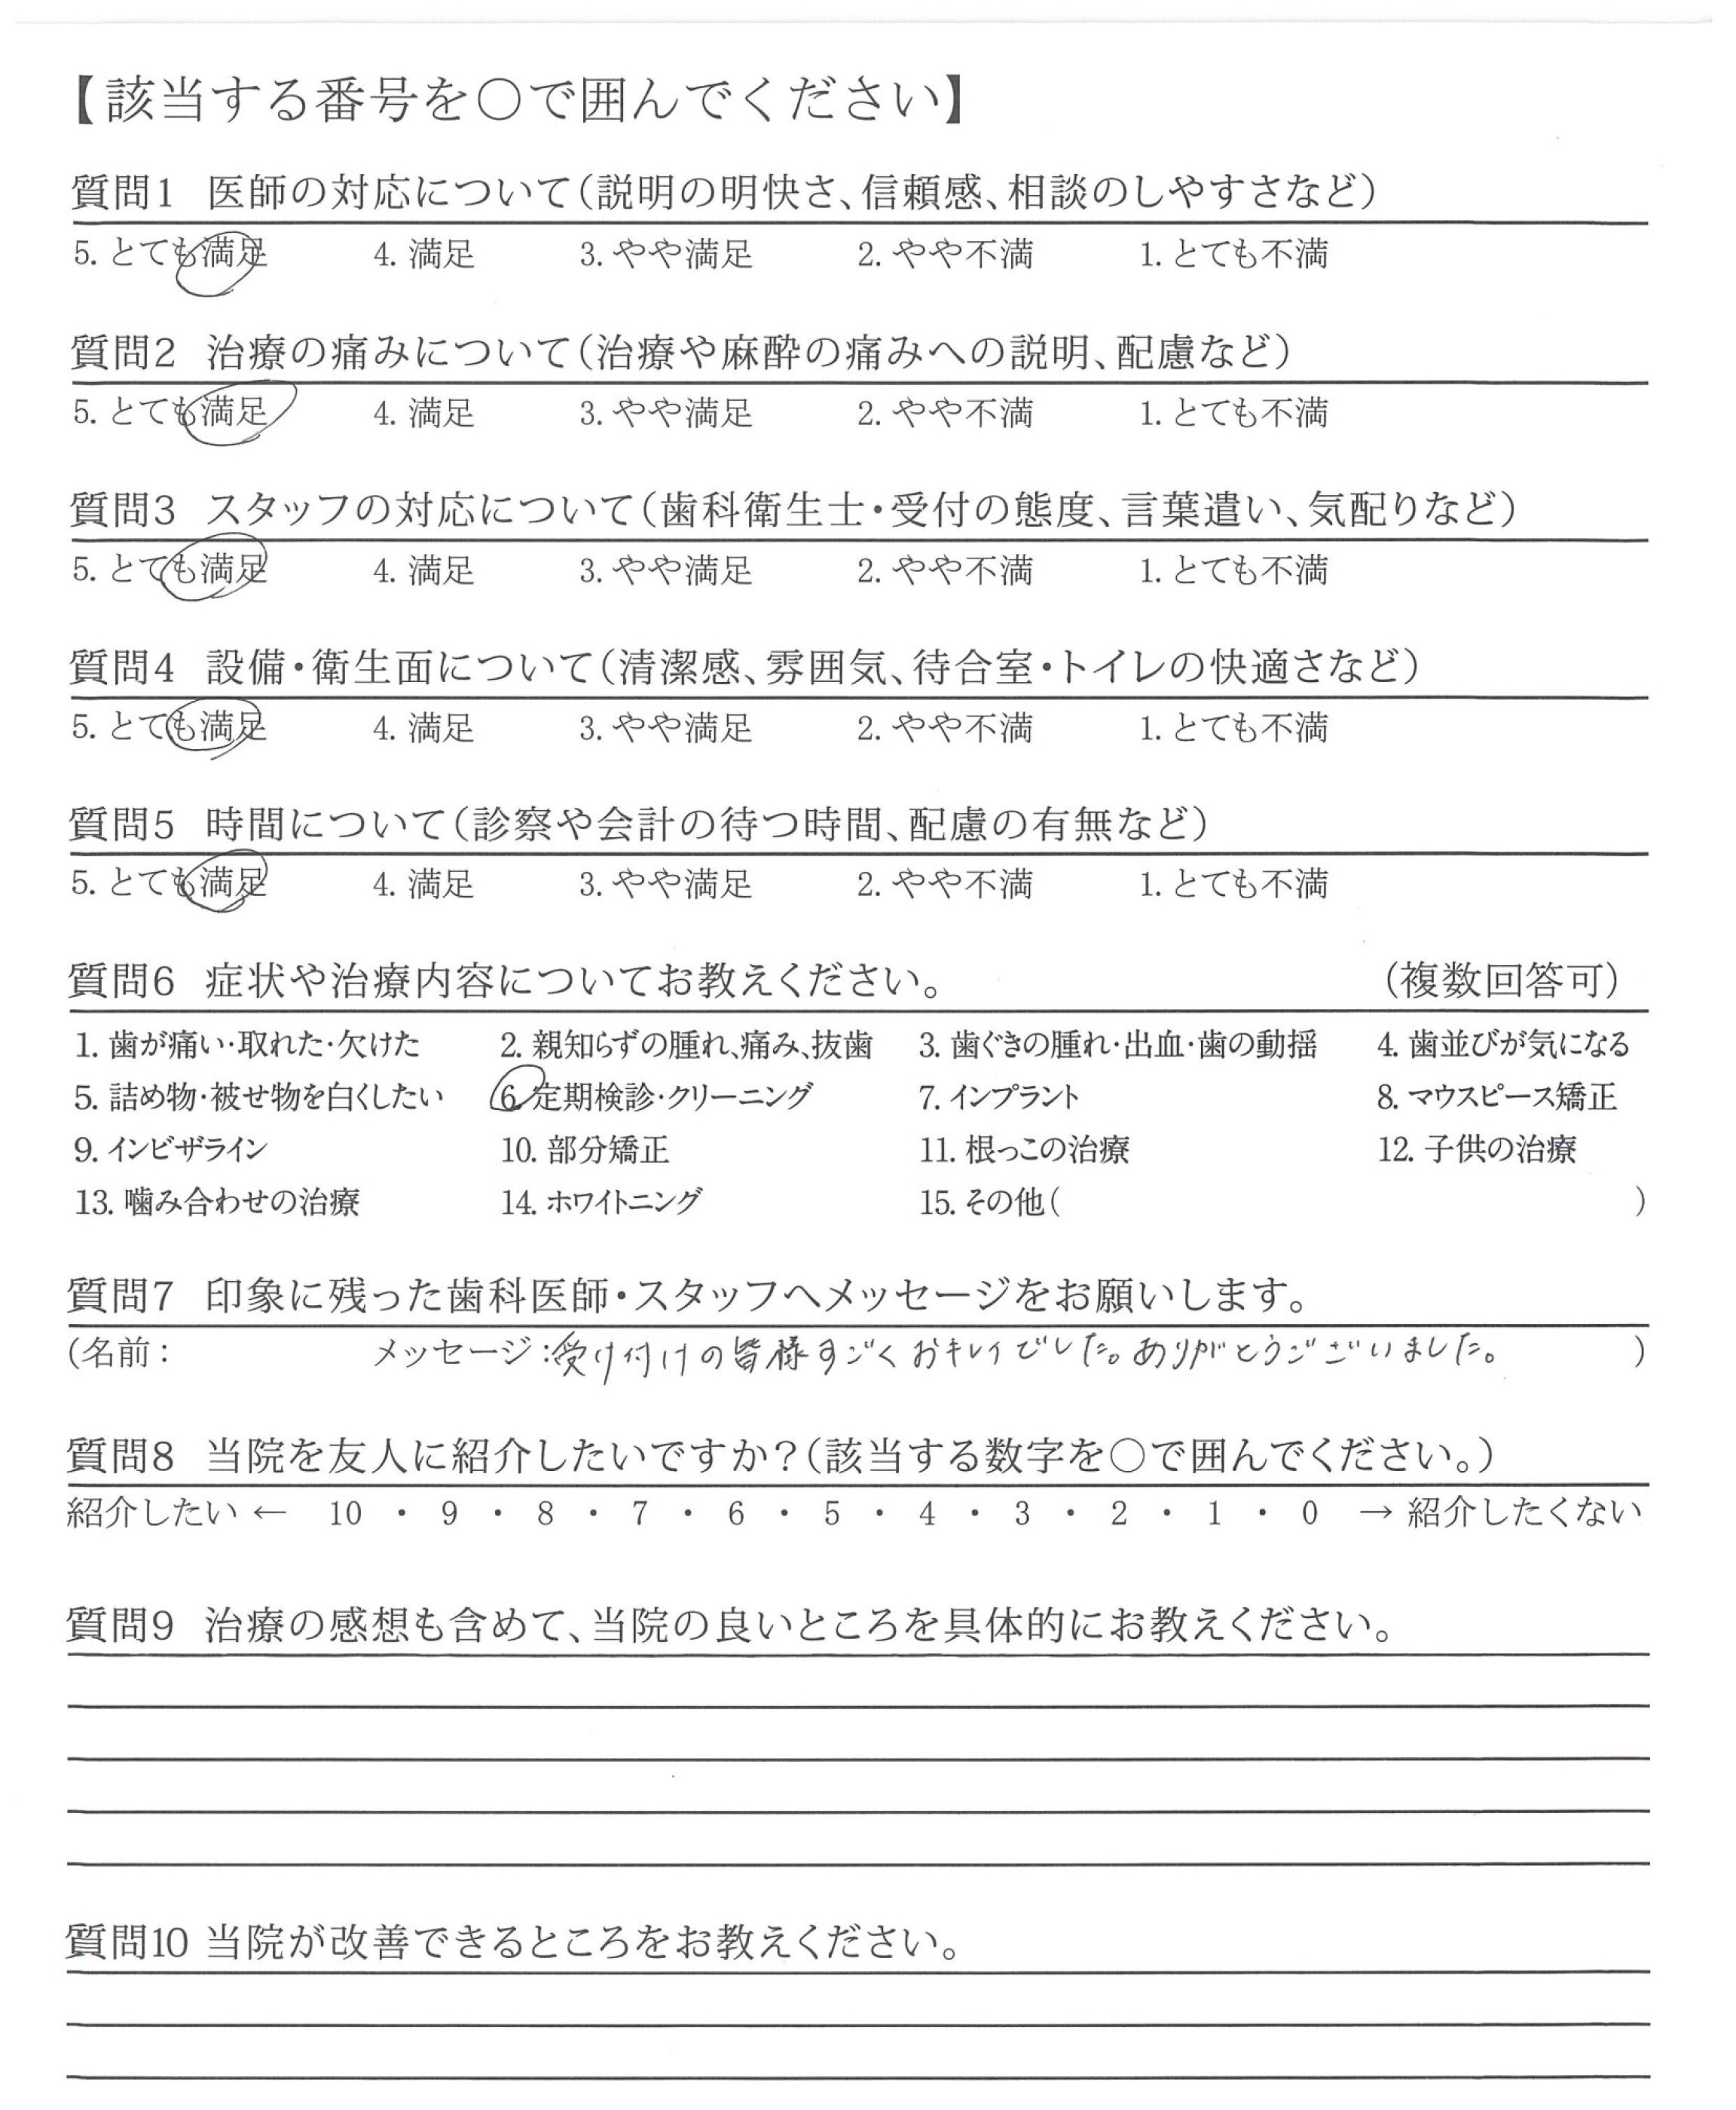 【該当する番号を○で囲んでください】
質問1 医師の対応について(説明の明快さ、信頼感、相談のしやすさなど)
5. とても満足 4. 満足 3. やや満足 2. やや不満 1. とても不満
質問2 治療の痛みについて(治療や麻酔の痛みへの説明、配慮など)
5. とても満足 4. 満足 3. やや満足 2. やや不満 1. とても不満
質問3 スタッフの対応について(歯科衛生士・受付の態度、言葉遣い、気配りなど)
5. とても満足 4. 満足 3. やや満足 2. やや不満 1. とても不満
質問4 設備・衛生面について(清潔感、雰囲気、待合室・トイレの快適さなど)
5. とても満足 4. 満足 3. やや満足 2. やや不満 1. とても不満
質問5 時間について(診察や会計の待つ時間、配慮の有無など)
5. とても満足 4. 満足 3. やや満足 2. やや不満 1. とても不満
質問6 症状や治療内容についてお教えください。 (複数回答可)
1. 歯が痛い・取れた・欠けた 2. 親知らずの腫れ、痛み、抜歯 3. 歯ぐきの腫れ・出血・歯の動揺 4. 歯並びが気になる
5. 詰め物・被せ物を白くしたい 6. 定期検診・クリーニング 7. インプラント 8. マウスピース矯正
9. インビザライン 10. 部分矯正 11. 根っこの治療 12. 子供の治療
13. 噛み合わせの治療 14. ホワイトニング 15. その他( )
質問7 印象に残った歯科医師・スタッフへメッセージをお願いします。
(名前: メッセージ:受け付けの皆様すごくおキレイでした。ありがとうございました。 )
質問8 当院を友人に紹介したいですか?(該当する数字を○で囲んでください。)
紹介したい ← 10 ・ 9 ・ 8 ・ 7 ・ 6 ・ 5 ・ 4 ・ 3 ・ 2 ・ 1 ・ 0 → 紹介したくない
質問9 治療の感想も含めて、当院の良いところを具体的にお教えください。
質問10 当院が改善できるところをお教えください。